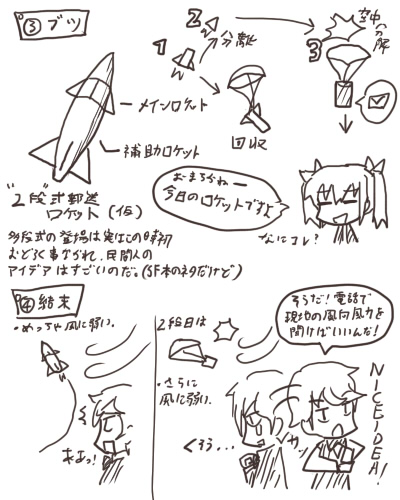 ③ブツ
1
2
分離
3
空中分解
メインロケット
補助ロケット
回収
"2段"式郵送
ロケット(仮)
おーまちかねー
今日のロケットですよ
なにコレ?
多段式の登場は実はこの時初
おどろく事なかれ、民間人の
アイデアはすごいのだ。(SF本のネタだけど)
④結末
・めっちゃ風に弱い.
あよっ!
2段目は
・さらに
風に弱い.
くそう...
そうだ!電話で
現地の風向風力を
聞けばいいんだ!
NICE IDEA!